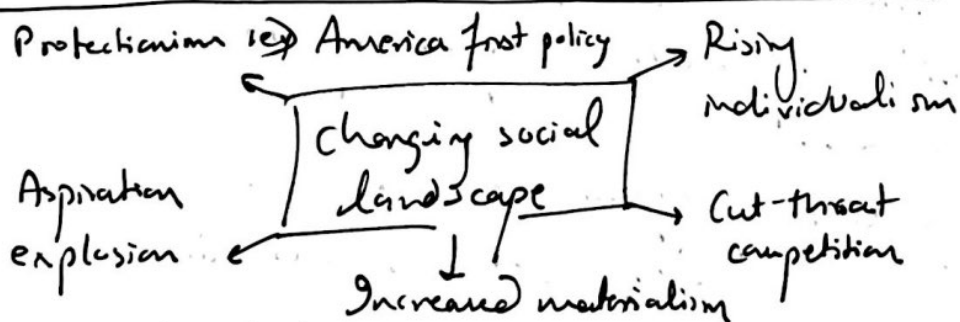 Protectionism ie⇒ America first policy
Rising
individualism
Changing social
landscape
Aspiration
explosion
Cut-throat
competition
Increased materialism